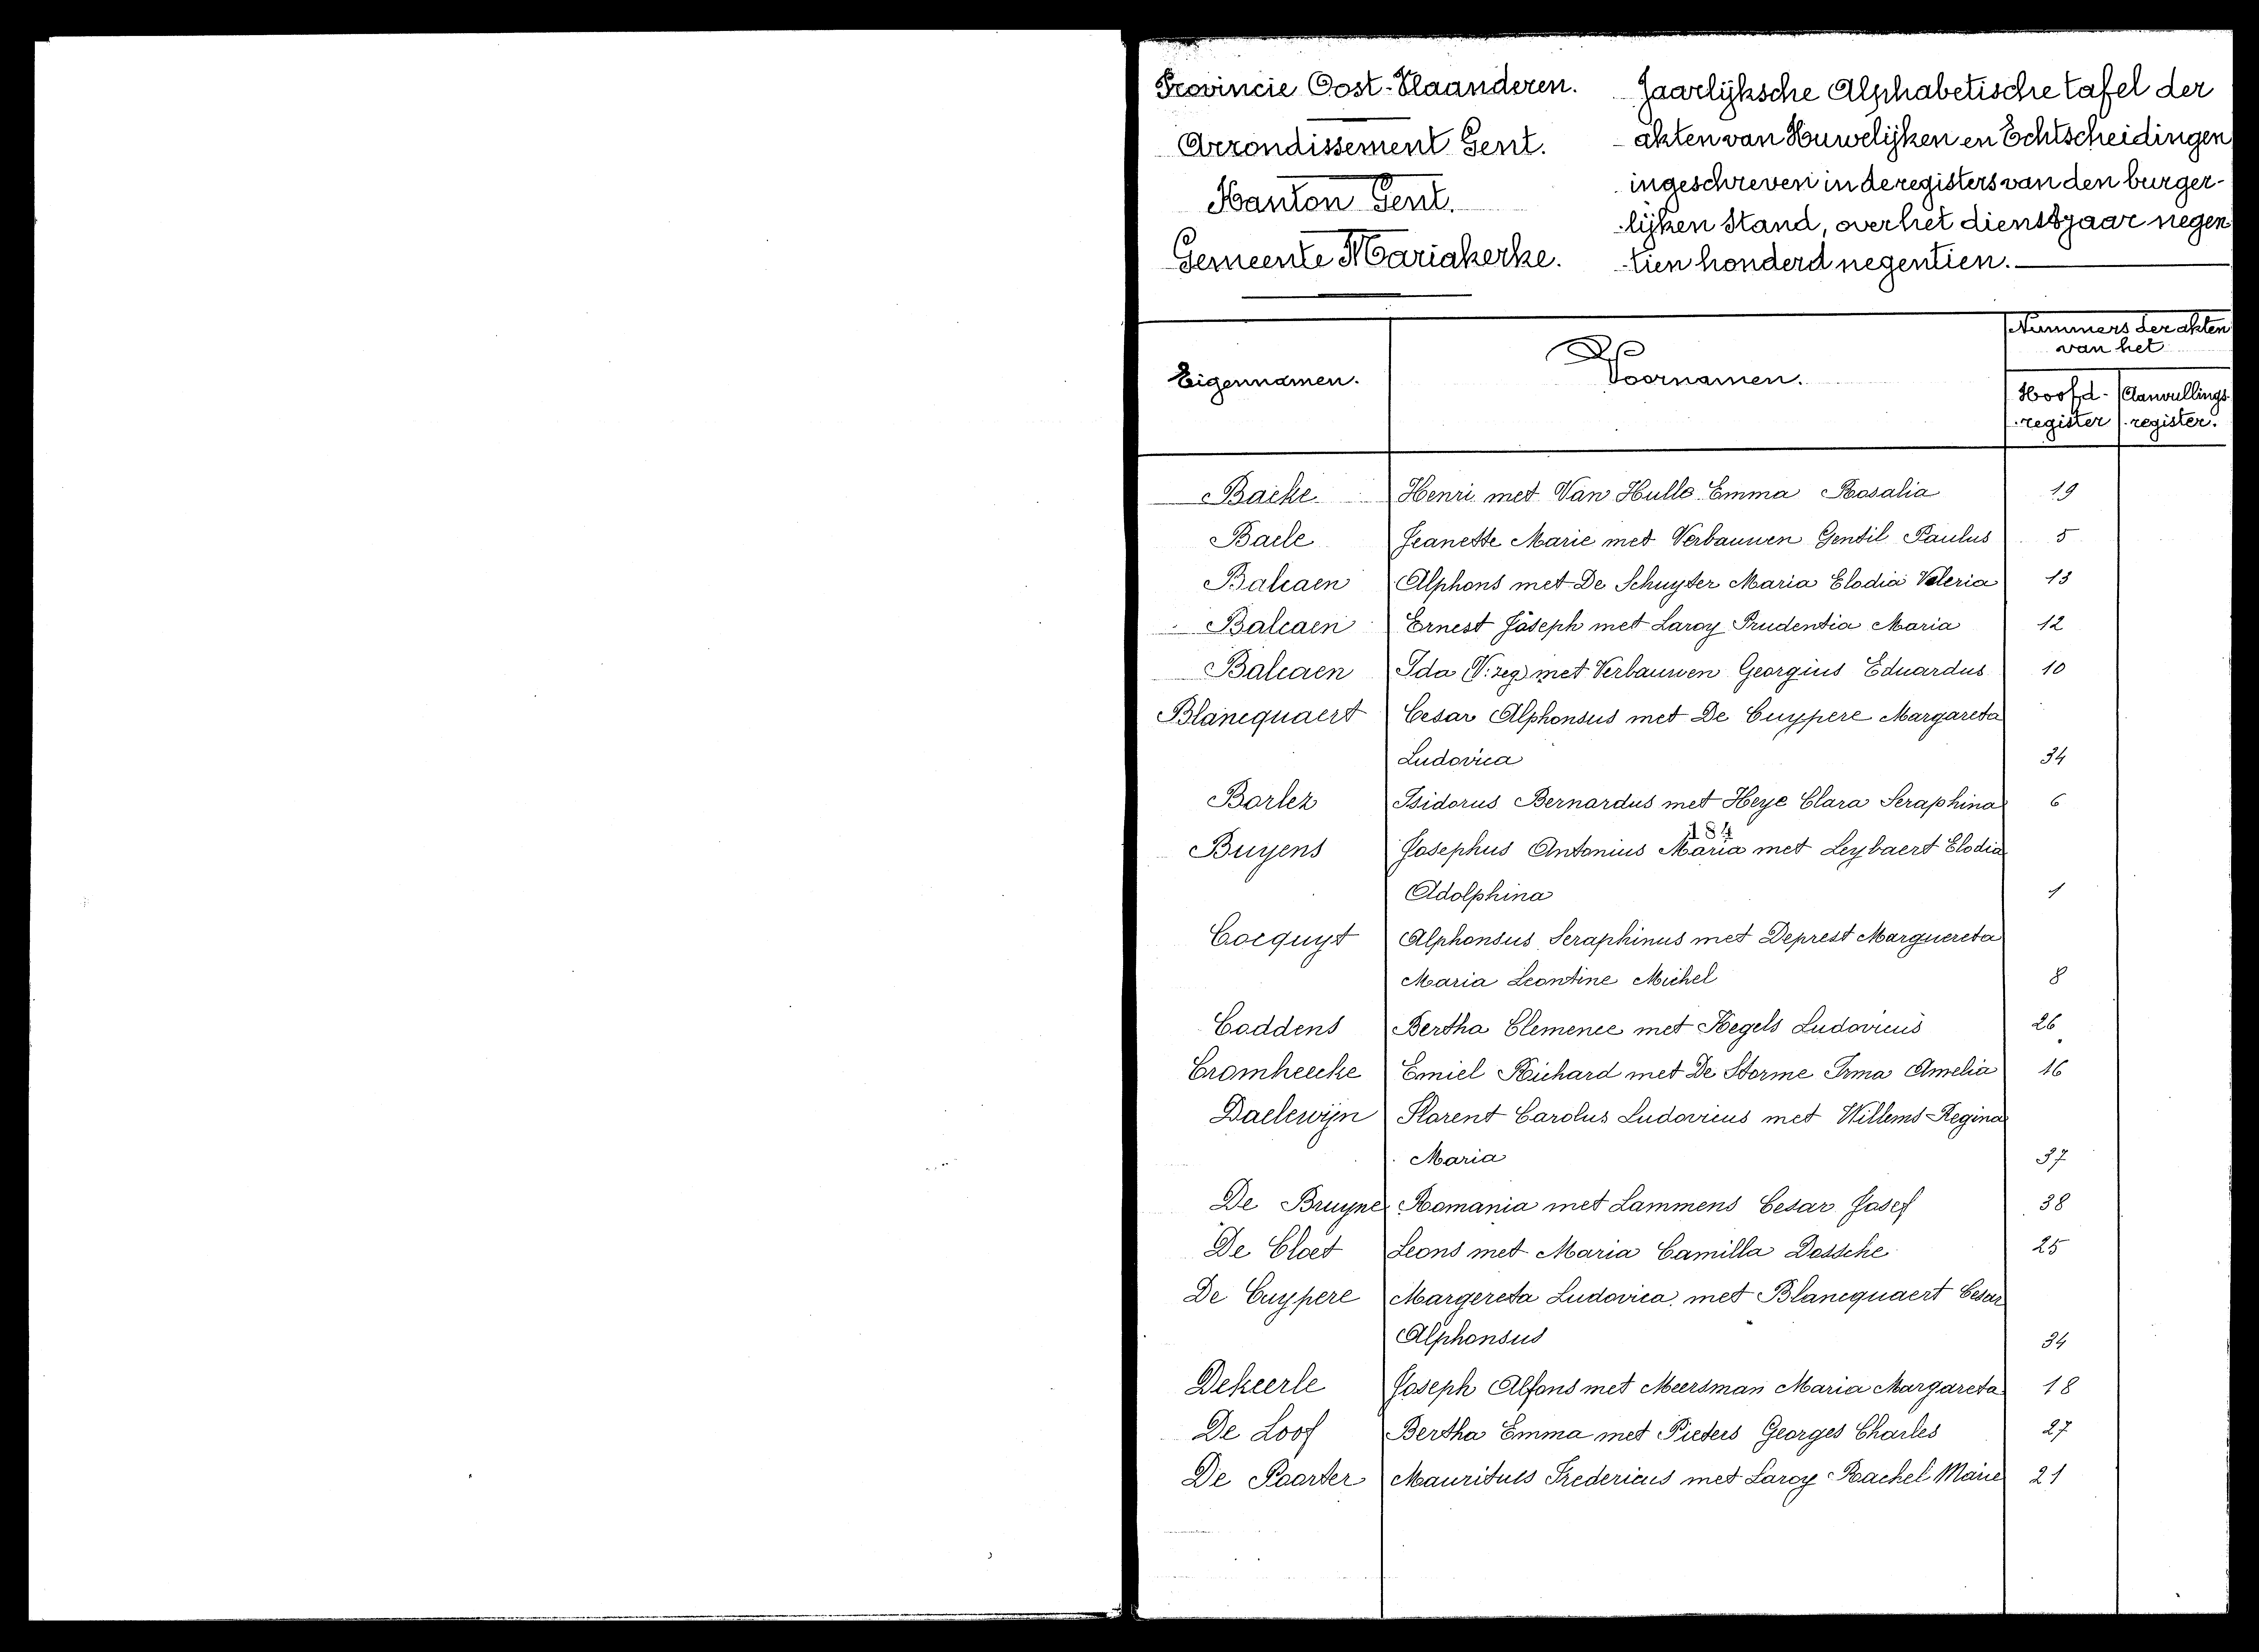 Provincie Oost-Vlaanderen.
Arrondissement Gent.
Kanton Gent.
Gemeente Mariakerke.
Jaarlijksche Alphabetische tafel der
akten van Huwelijken en Echtscheidingen
ingeschreven in de registers van den burger-
lijken Stand, over het dienstjaar negen
tien honderd negentien.
Eigennamen.
Voornamen.
Nummers der akten
van het
Hoofd- Aanvullings
register register.
Backe Henri met Van Hulle Emma Rosalia 19
Baele Jeanette Marie met Verbauwen Gentil Paulus 5
Balcaen Alphons met De Schuyter Maria Elodia Valeria 13
Balcaen Ernest Joseph met Laroy Prudentia Maria 12
Balcaen Ida (V: reg) met Verbauwen Georgius Eduardus 10
Blancquaert Cesar Alphonsus met De Cuypere Margareta
Ludovica 34
Borlez Isidorus Bernardus met Heye Clara Seraphina 6
184
Buyens Josephus Antonius Maria met Leybaert Elodia
Adolphina 1
Cocquyt Alphonsus Seraphinus met Deprest Marguereta
Maria Leontine Michel 8
Coddens Bertha Clemence met Kegels Ludovicus 26
Cromheecke Emiel Richard met De Storme Irma Amelia 16
Daelewijn Florent Carolus Ludovicus met Willems Regina
Maria 37
De Bruyne Romania met Lammens Cesar Josef 38
De Cloet Leons met Maria Camilla Dossche 25
De Cuypere Margereta Ludovica met Blancquaert Cesar
Alphonsus 34
Dekeerle Joseph Alfons met Meersman Maria Margareta 18
De Loof Bertha Emma met Pieters Georges Charles 27
De Poorter Maurituls Fredericus met Laroy Rachel Marie 21